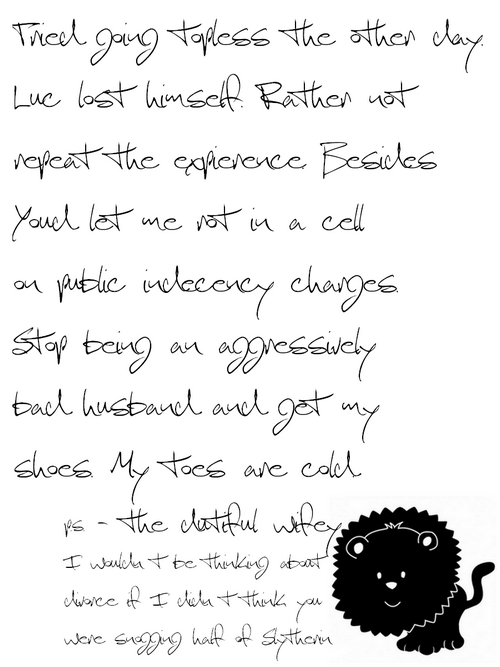 Tried going topless the other day.
Luc lost himself. Rather not
repeat the expierence. Besides
Youd let me rot in a cell
on public indecency charges.
Stop being an aggressively
bad husband and get my
shoes. My toes are cold
ps - the dutiful wifey
I wouldn t be thinking about
divorce if I didn t think you
were snogging half of Slytherin